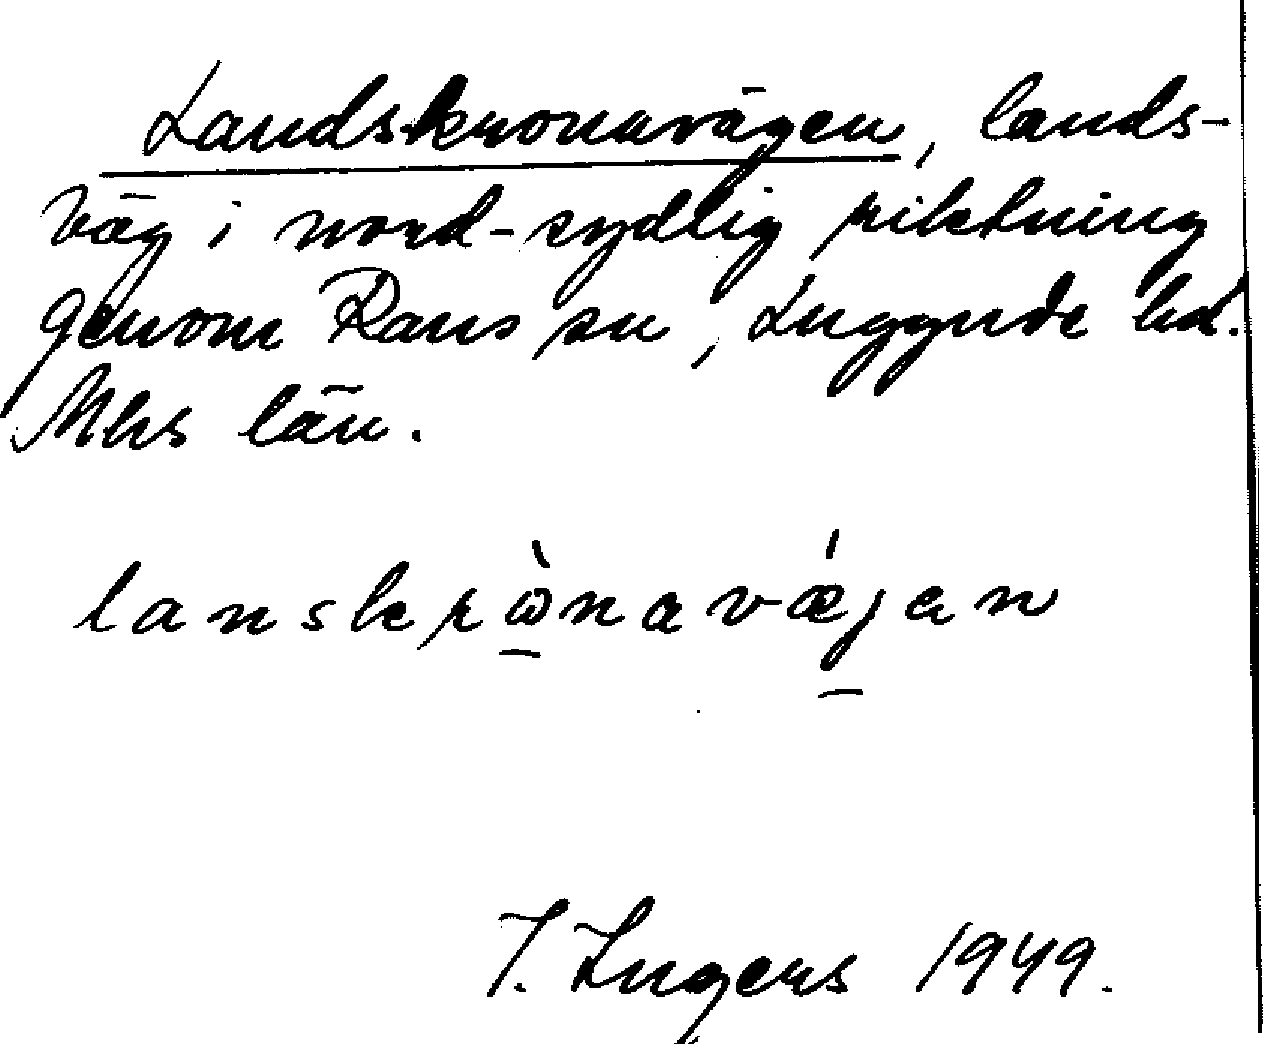 Landskronavägen, lands-
väg i nord-sydlig riktning
genom Raus sn, Luggude hd.
Mhs län.
lanskrὼ̱navǽj̱ən
I. Ingers 1949.